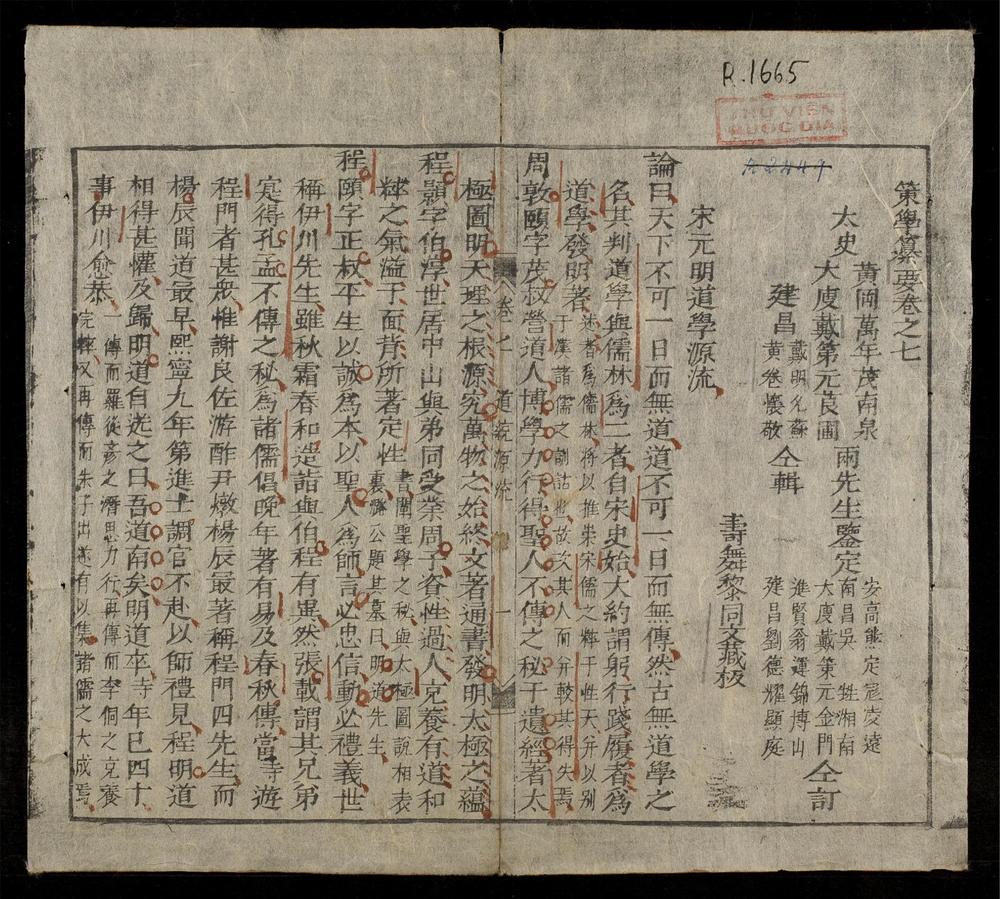 R.1665
THƯ VIỆN
QUỐC GIA
A2449
策學纂要卷之七
太史
黃岡萬年茂南泉
大庾戴第元莨圃
兩先生鑒定
安高熊定
南昌吳
大庾戴第元金門
進賢翁運錦博山
建昌劉德耀顯庭
仝訂
建昌
戴明
黃卷懷敬
仝輯
壽舞黎同文藏板
宋元明道學源流
論曰天下不可一日而無道道不可一日而無傳然古無道學之
名其判道學與儒林為二者自宋史始大約謂躬行踐履者為
道學發明著
述者為儒林將以推崇宋儒之粹于性天并以別
于漢諸儒之訓詁也故次其人而分較其得失焉
周敦頤字茂叔營道人博學力行得聖人不傳之秘于遺經著太
極圖明天理之根源究萬物之始終文著通書發明太極之蘊
程顥字伯淳世居中山與弟同受業周子資性過人充養有道和
粹之氣溢于面背所著定性
書闡聖學之秘與太極圖說相表
裏潞公題其墓曰明道先生
程頤字正叔平生以誠為本以聖人為師言必忠信動必禮義世
稱伊川先生雖秋霜春和造詣與伯程有異然張載謂其兄弟
寔得孔孟不傳之秘為諸儒倡晚年著有易及春秋傳當寺遊
程門者甚衆惟謝良佐游酢尹燉楊辰最著稱程門四先生而
楊辰聞道最早熙寧九年第進士調官不赴以師禮見程明道
相得甚懽及歸明道自送之曰吾道南矣明道卒寺年巳四十
事伊川愈恭
一傳而羅從彥之潛思力行再傳而李侗之充養
完粹又再傳而朱子出遂有以集諸儒之大成焉
卷之
道統源流
一